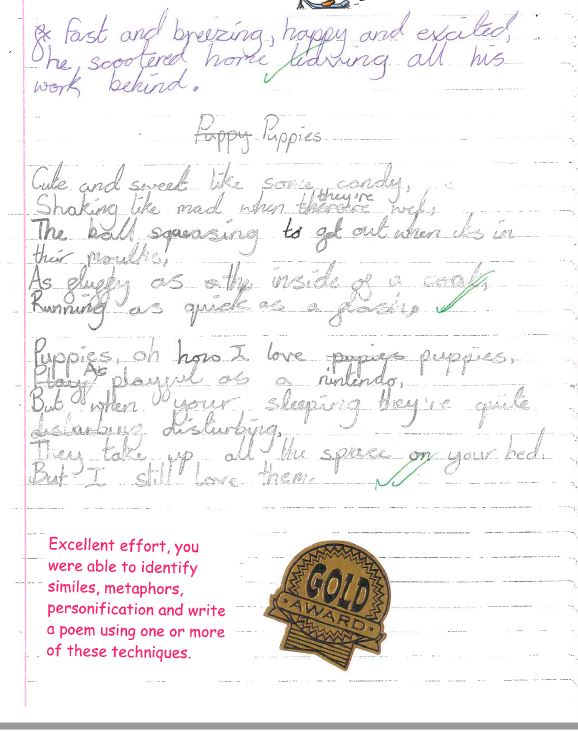 Fast and breezing, happy and excited,
he scootered home leaving all his
work behind.
Puppy Puppies
Cute and sweet like some candy,
Shaking like mad when therefore they're wet,
The ball squeasing to get out when its in
their mouths,
As fluffy as the inside of a coat,
Running as quick as a
Puppies, oh how I love pupies puppies,
Play As playful as a nintendo,
But when your sleeping they're quite
disturbing disturbing,
They take up all the space on your bed.
But I still love them.
Excellent effort, you
were able to identify
similes, metaphors,
personification and write
a poem using one or more
of these techniques.
GOLD
AWARD